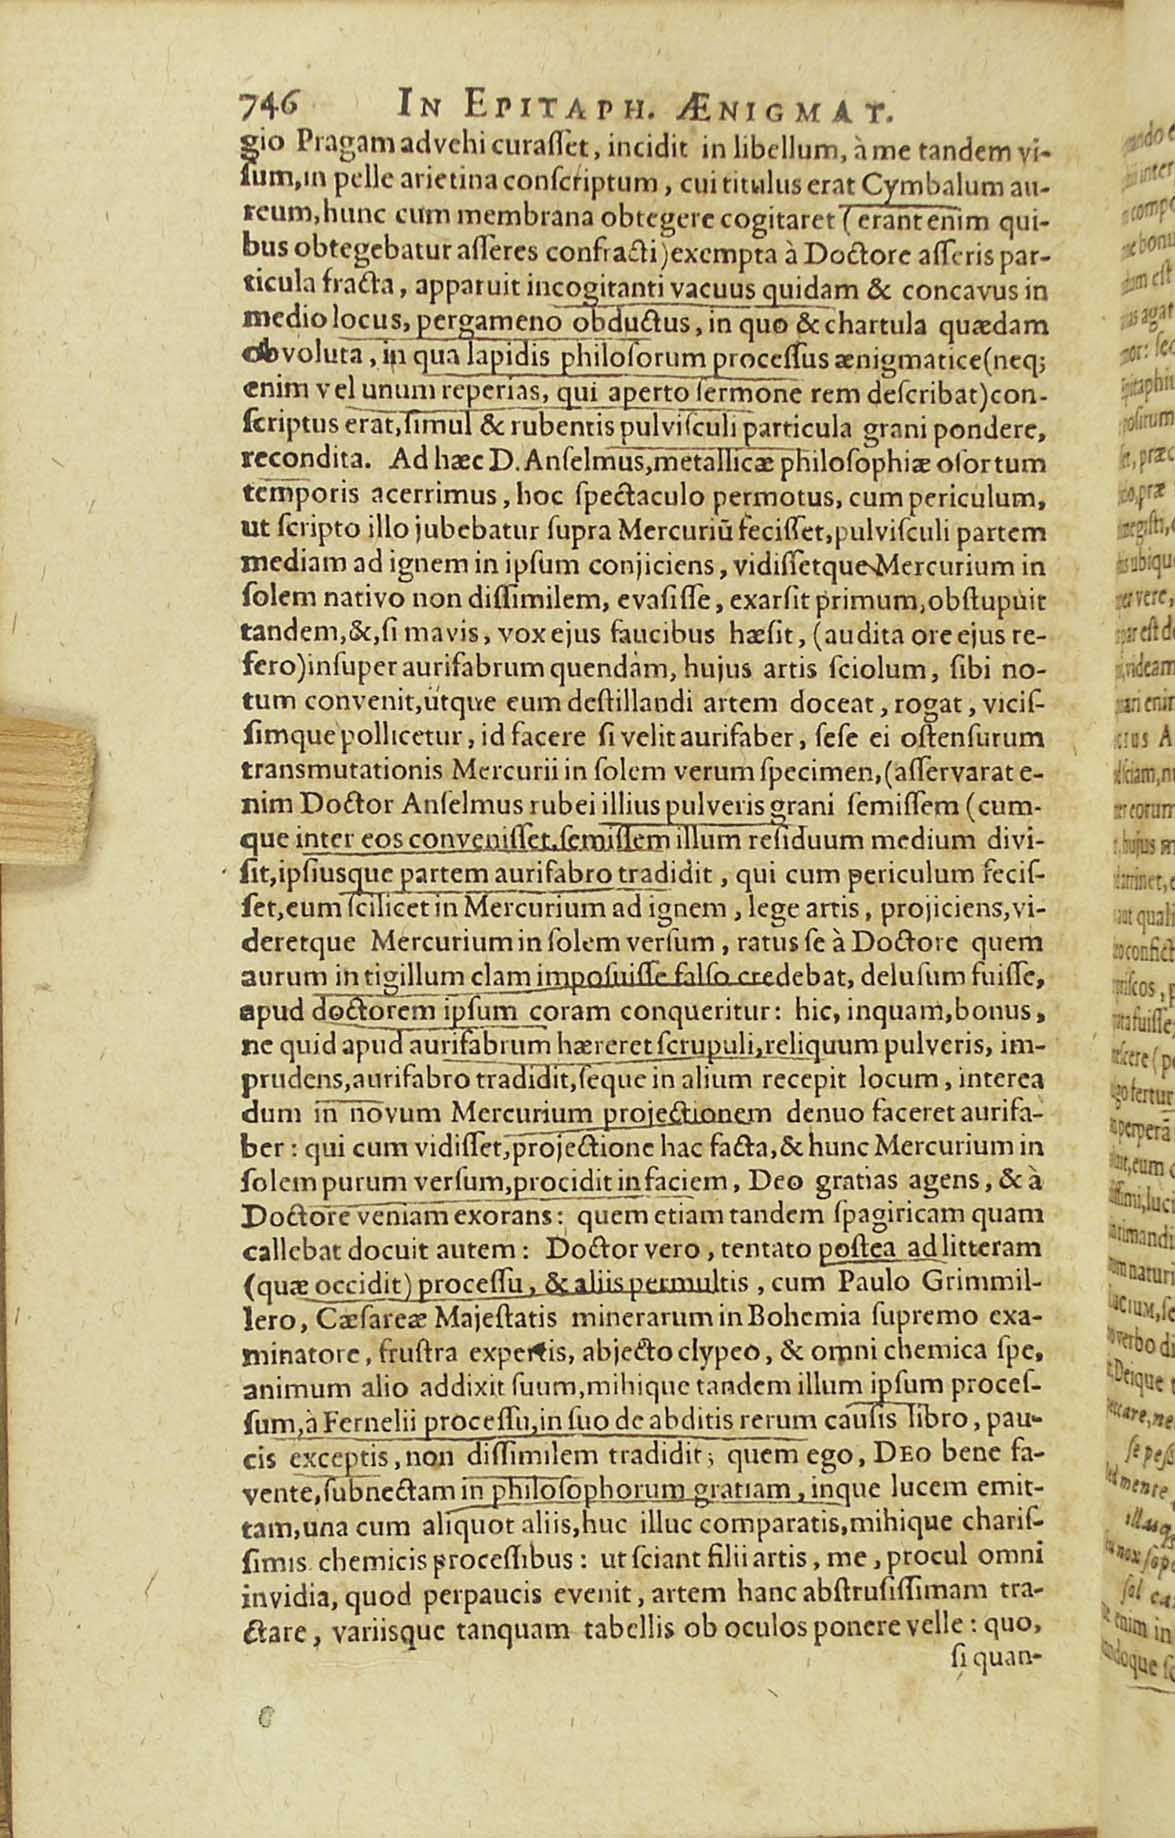 746 IN EPITAPH. ÆNIGMAT.
gio Pragam advehi curaſſet, incidit in libellum, à me tandem vi-
ſum, in pelle arietina conſcriptum, cui titulus erat Cymbalum au-
reum, hunc cum membrana obtegere cogitaret (erant enim qui-
bus obtegebatur aſſeres confracti) exempta à Doctore aſſeris par-
ticula fracta, apparuit incogitanti vacuus quidam & concavus in
medio locus, pergameno obductus, in quo & chartula quædam
obvoluta, in qua lapidis philoſorum proceſſus ænigmatice (neq;
enim vel unum reperias, qui aperto ſermone rem deſcribat) con-
ſcriptus erat, ſimul & rubentis pulviſculi particula grani pondere,
recondita. Ad hæc D. Anſelmus, metallicæ philoſophiæ oſortum
temporis acerrimus, hoc ſpectaculo permotus, cum periculum,
ut ſcripto illo jubebatur ſupra Mercuriū feciſſet, pulviſculi partem
mediam ad ignem in ipſum conjiciens, vidiſſetque Mercurium in
ſolem nativo non diſſimilem, evaſiſſe, exarſit primum, obſtupuit
tandem, &, ſi mavis, vox ejus faucibus hæſit, (audita ore ejus re-
fero) inſuper aurifabrum quendam, hujus artis ſciolum, ſibi no-
tum convenit, útque eum deſtillandi artem doceat, rogat, viciſ-
ſimque pollicetur, id facere ſi velit aurifaber, ſeſe ei oſtenſurum
transmutationis Mercurii in ſolem verum ſpecimen, (aſſervarat e-
nim Doctor Anſelmus rubei illius pulveris grani ſemiſſem (cum-
que inter eos conveniſſet, ſemiſſem illum reſiduum medium divi-
ſit, ipſiusque partem aurifabro tradidit, qui cum periculum feciſ-
ſet, eum ſcilicet in Mercurium ad ignem, lege artis, projiciens, vi-
deretque Mercurium in ſolem verſum, ratus ſe à Doctore quem
aurum in tigillum clam impoſuiſſe falſo credebat, deluſum fuiſſe,
apud doctorem ipſum coram conqueritur: hic, inquam, bonus,
ne quid apud aurifabrum hæreret ſcrupuli, reliquum pulveris, im-
prudens, aurifabro tradidit, ſeque in alium recepit locum, interea
dum in novum Mercurium projectionem denuo faceret aurifa-
ber: qui cum vidiſſet, projectione hac facta, & hunc Mercurium in
ſolem purum verſum, procidit in faciem, Deo gratias agens, & à
Doctore veniam exorans: quem etiam tandem ſpagiricam quam
callebat docuit autem: Doctor vero, tentato poſtea ad litteram
(quæ occidit) proceſſu, & aliis permultis, cum Paulo Grimmil-
lero, Cæſareæ Majeſtatis minerarum in Bohemia ſupremo exa-
minatore, fruſtra expertis, abjecto clypeo, & omni chemica ſpe,
animum alio addixit ſuum, mihique tandem illum ipſum proceſ-
ſum, à Fernelii proceſſu, in ſuo de abditis rerum cauſis libro, pau-
cis exceptis, non diſſimilem tradidit; quem ego, DEO bene fa-
vente, ſubnectam in philoſophorum gratiam, inque lucem emit-
tam, una cum aliquot aliis, huc illuc comparatis, mihique chariſ-
ſimis chemicis proceſſibus: ut ſciant filii artis, me, procul omni
invidia, quod perpaucis evenit, artem hanc abſtruſiſſimam tra-
ctare, variisque tanquam tabellis ob oculos ponere velle: quo,
ſi quan-